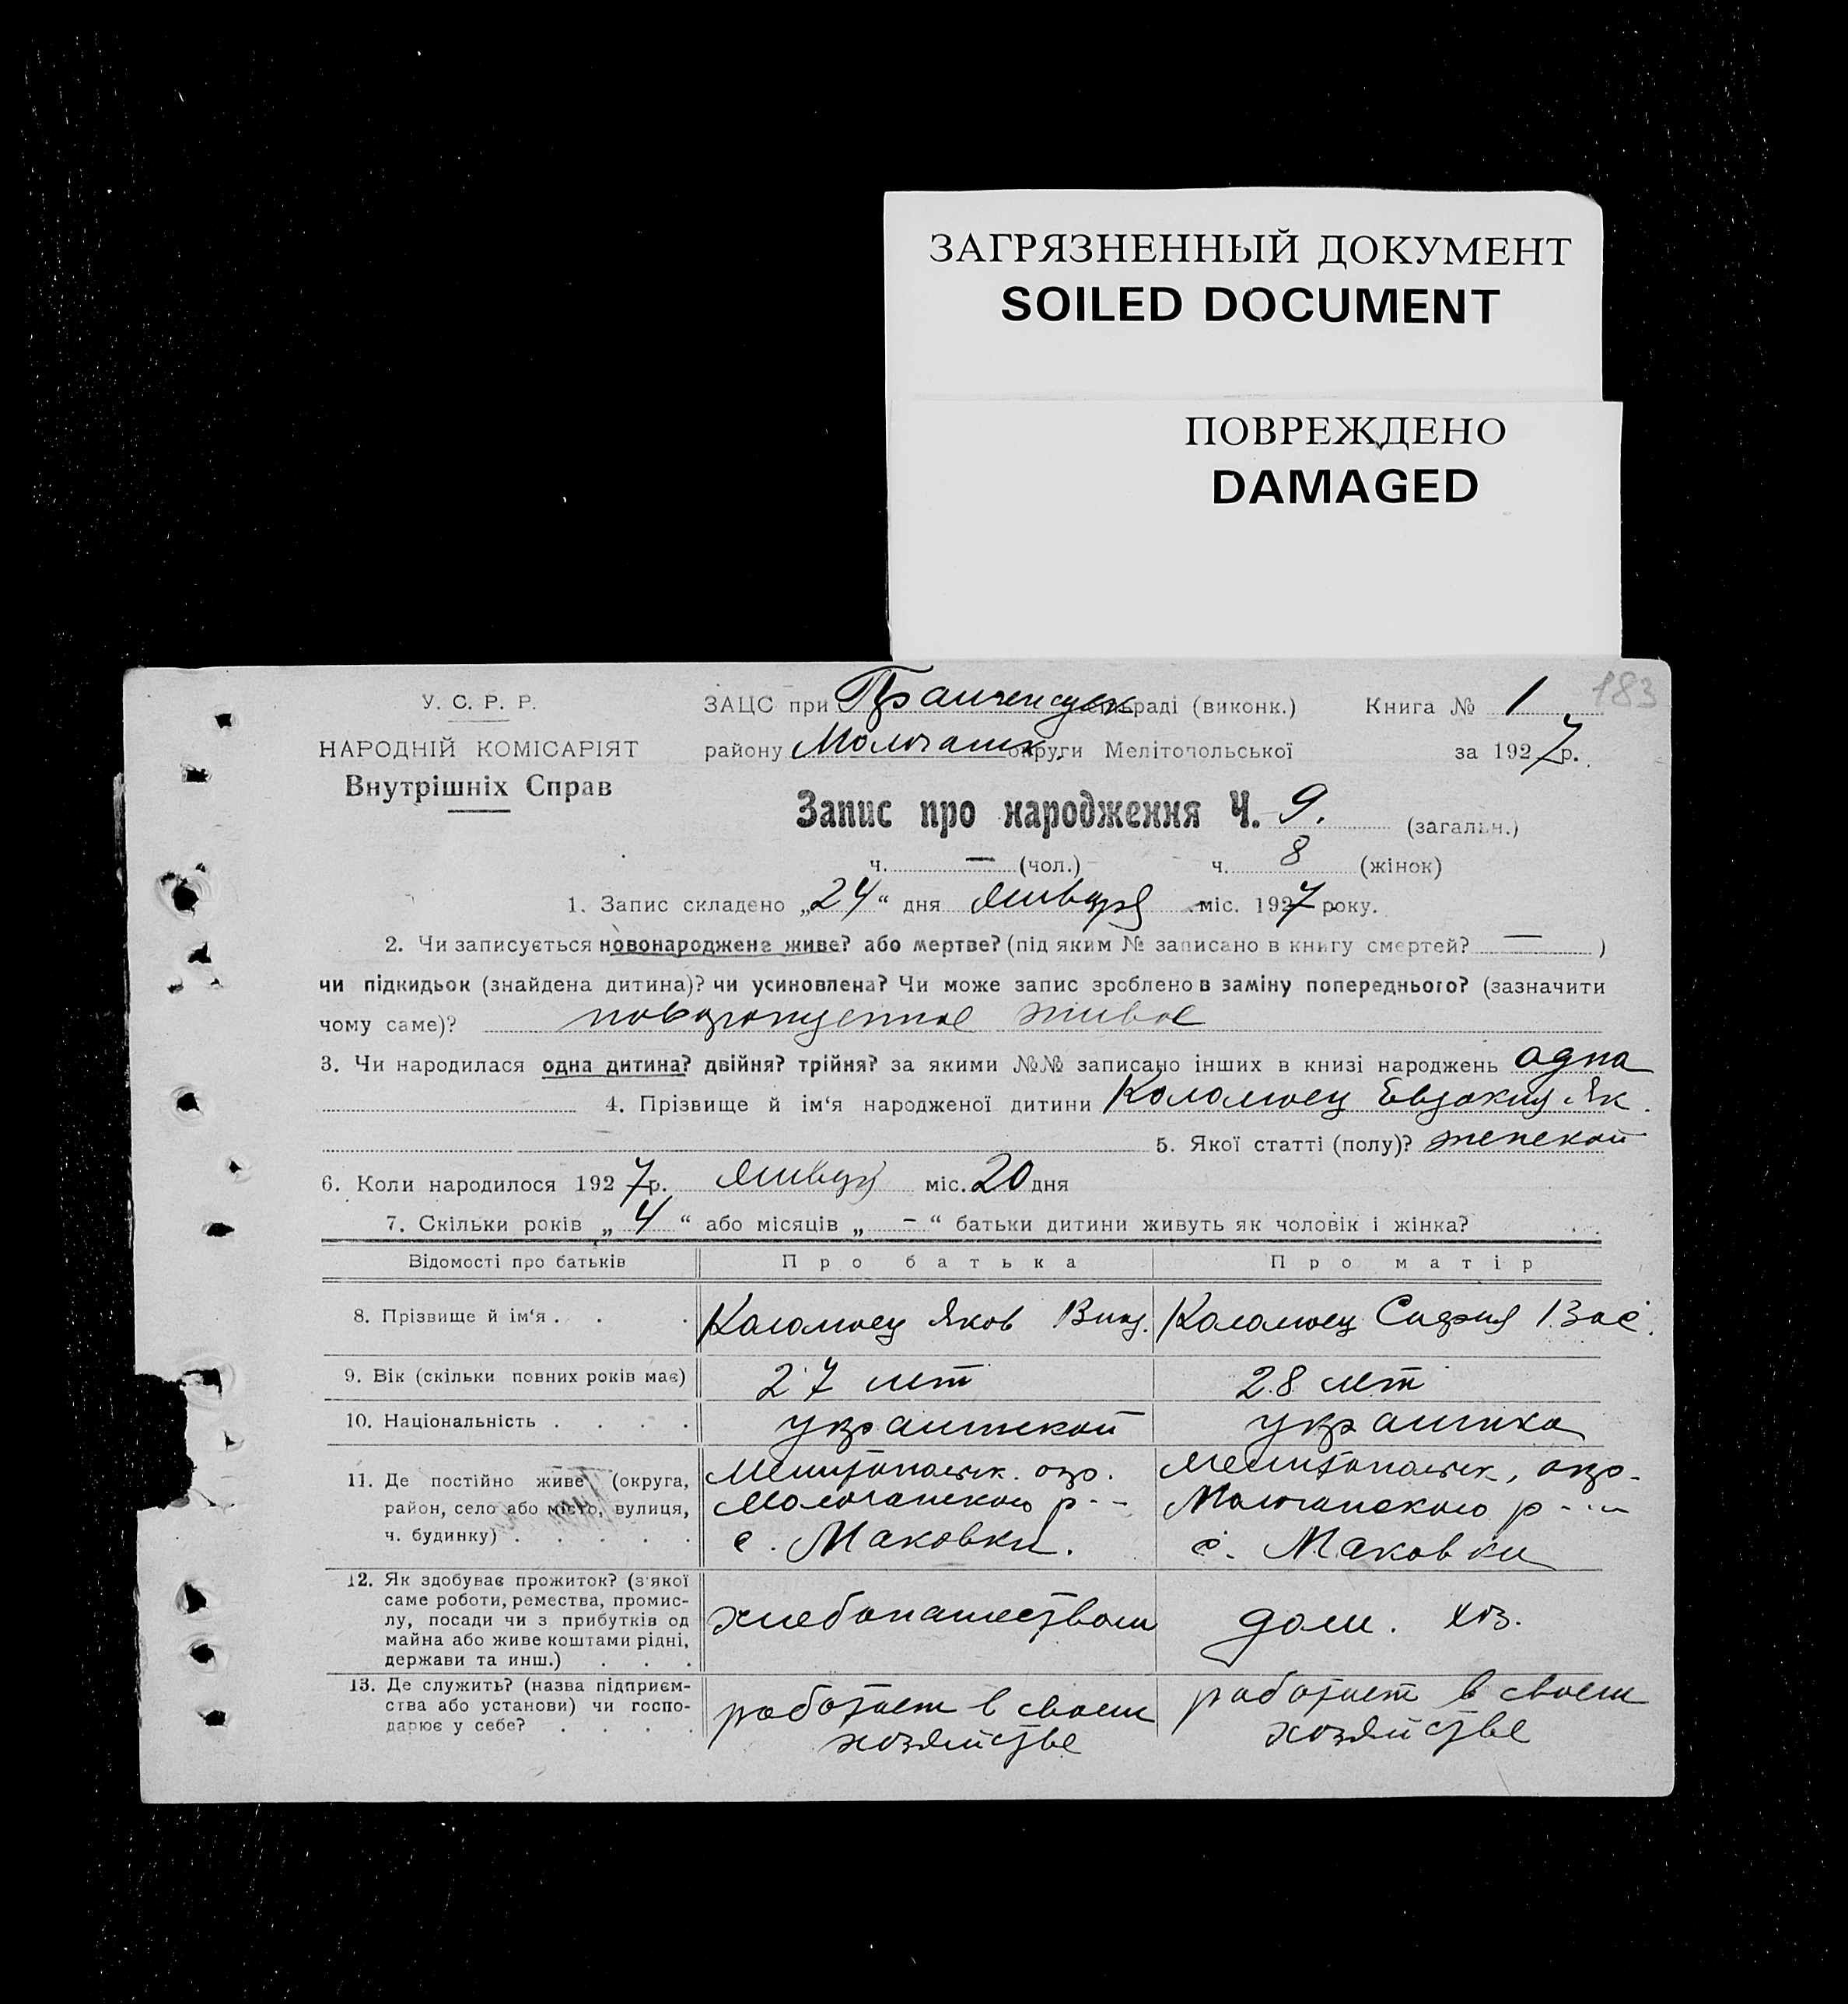 ЗАГРЯЗНЕННЫЙ ДОКУМЕНТ
SOILED DOCUMENT
ПОВРЕЖДЕНО
DAMAGED
183
У. С. Р. Р.
НАРОДНІЙ КОМІСАРІЯТ
Внутрішніх Справ
ЗАЦС при раді (виконк.) Книга № 1
району Молочанск. округи Мелітопольської за 1927 р.
Запис про народження Ч. 9. (загальн.)
ч. — (чол.) ч. 8 (жінок)
1. Запис складено „24“ дня января міс. 1927 року.
2. Чи записується новонароджене живе? або мертве? (під яким № записано в книгу смертей? — )
чи підкидьок (знайдена дитина)? чи усиновлена? Чи може запис зроблено в заміну попереднього? (зазначити
чому саме)? новорожденное живое
3. Чи народилася одна дитина? двійня? трійня? за якими №№ записано інших в книзі народжень одна
4. Прізвище й ім‘я народженої дитини Коломоец Евдокия Як.
5. Якої статті (полу)? женской
6. Коли народилося 1927 р. января міс. 20 дня
7. Скільки років „ 4 “ або місяців „ - “ батьки дитини живуть як чоловік і жінка?
Відомості про батьків Про батька Про матір
8. Прізвище й ім‘я . . . Коломоец Яков Коломоец София Вас.
9. Вік (скільки повних років має) 27 лет 28 лет
10. Національність . . . . украинской украинка
11. Де постійно живе (округа, Мелитопольск. окр. Мелитопольск. окр.
район, село або місто, вулиця, Молочанского р-- Молочанского р---
ч. будинку) . . . . . с. Маковки. с. Маковки
12. Як здобуває прожиток? (з якої
саме роботи, ремества, промис-
лу, посади чи з прибутків од хлебопашеством дом. хоз.
майна або живе коштами рідні,
держави та инш.) . . .
13. Де служить? (назва підприєм-
ства або установи) чи госпо- работает в своем работает в своем
дарює у себе? . . . . хозяйстве хозяйстве